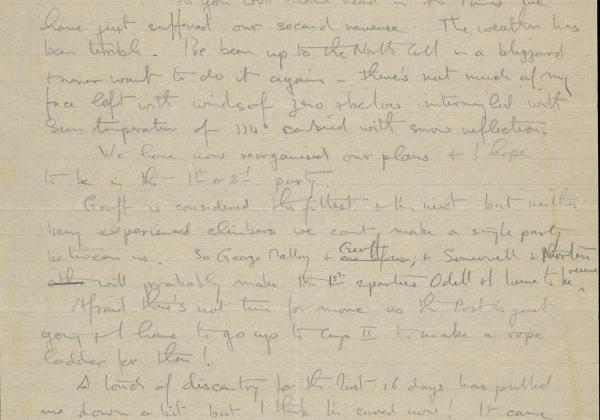 To you will have read in the Times we
have just suffered our second reverse. The weather has
been terrible. I've been up to the North Coll in a blizzard
+ never want to do it again - there's not much of my
face left with winds of zero + below intermingled with
Sun temperature of 114° combined with snow reflection.
We have now reorganised our plans + I hope
to be in the 1st or 2nd party.
Geoff is considered the fittest + the next but neither
being experienced climbers we cant make a single party
between us. So George Mallory + Geoff; + Somervell + Norton
will probably make the 1st 2 parties Odell + I have to be reserve
Afraid there's not time for more as the Post is just
going + I have to go up to Camp II to make a rope
ladder for them!
A touch of dysentry for the last 16 days has pulled
me down a bit but I think I'm cured now! It came